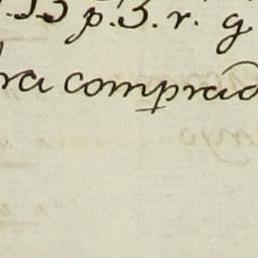 .13 p.3. r. g
ra comprad